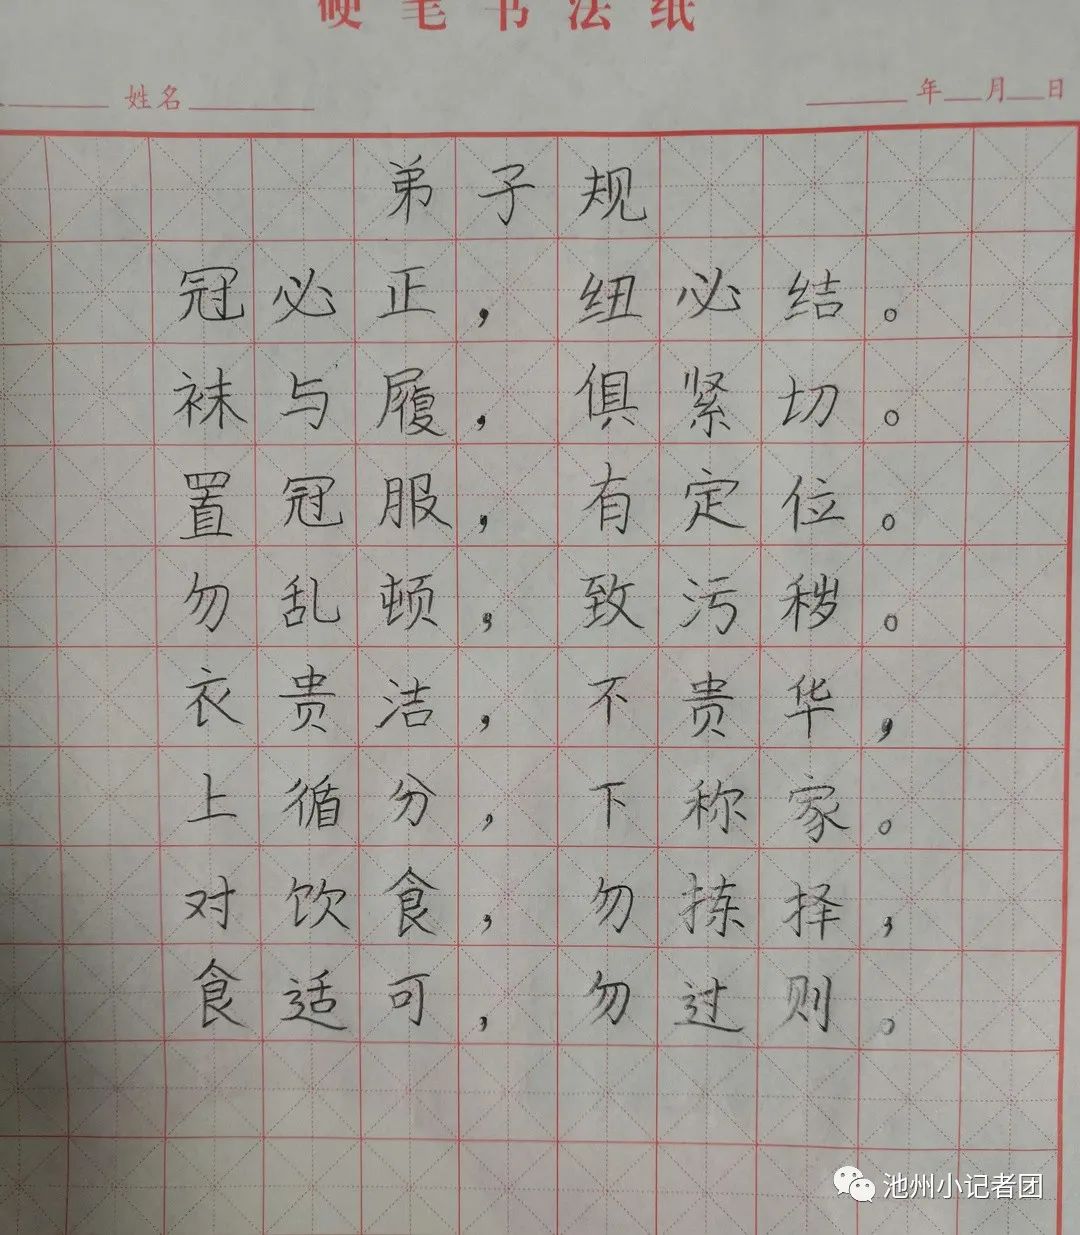 硬笔书法纸
姓名 年 月 日
弟子规
冠必正，纽必结。
袜与履，俱紧切。
置冠服，有定位。
勿乱顿，致污秽。
衣贵洁，不贵华，
上循分，下称家。
对饮食，勿拣择，
食适可，勿过则。
池州小记者团